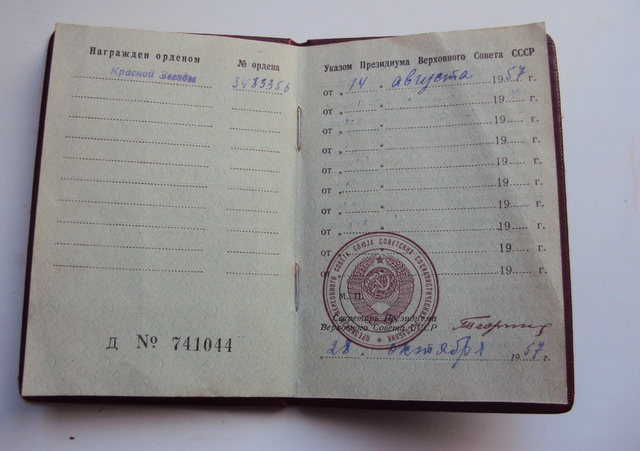 Награжден орденом
№ ордена
Красной Звезды
3483356
Д № 741044
Указом Президиума Верховного Совета СССР
от „ 14 „ августа 1957 г.
от „ „ 19 г.
от „ „ 19 г.
от „ „ 19 г.
от „ „ 19 г.
от „ „ 19 г.
от „ „ 19 г.
от „ „ 19 г.
от „ „ 19 г.
от „ „ 19 г.
М. П.
Секретарь Президиума
Верховного Совета СССР
28 октября 1957 г.